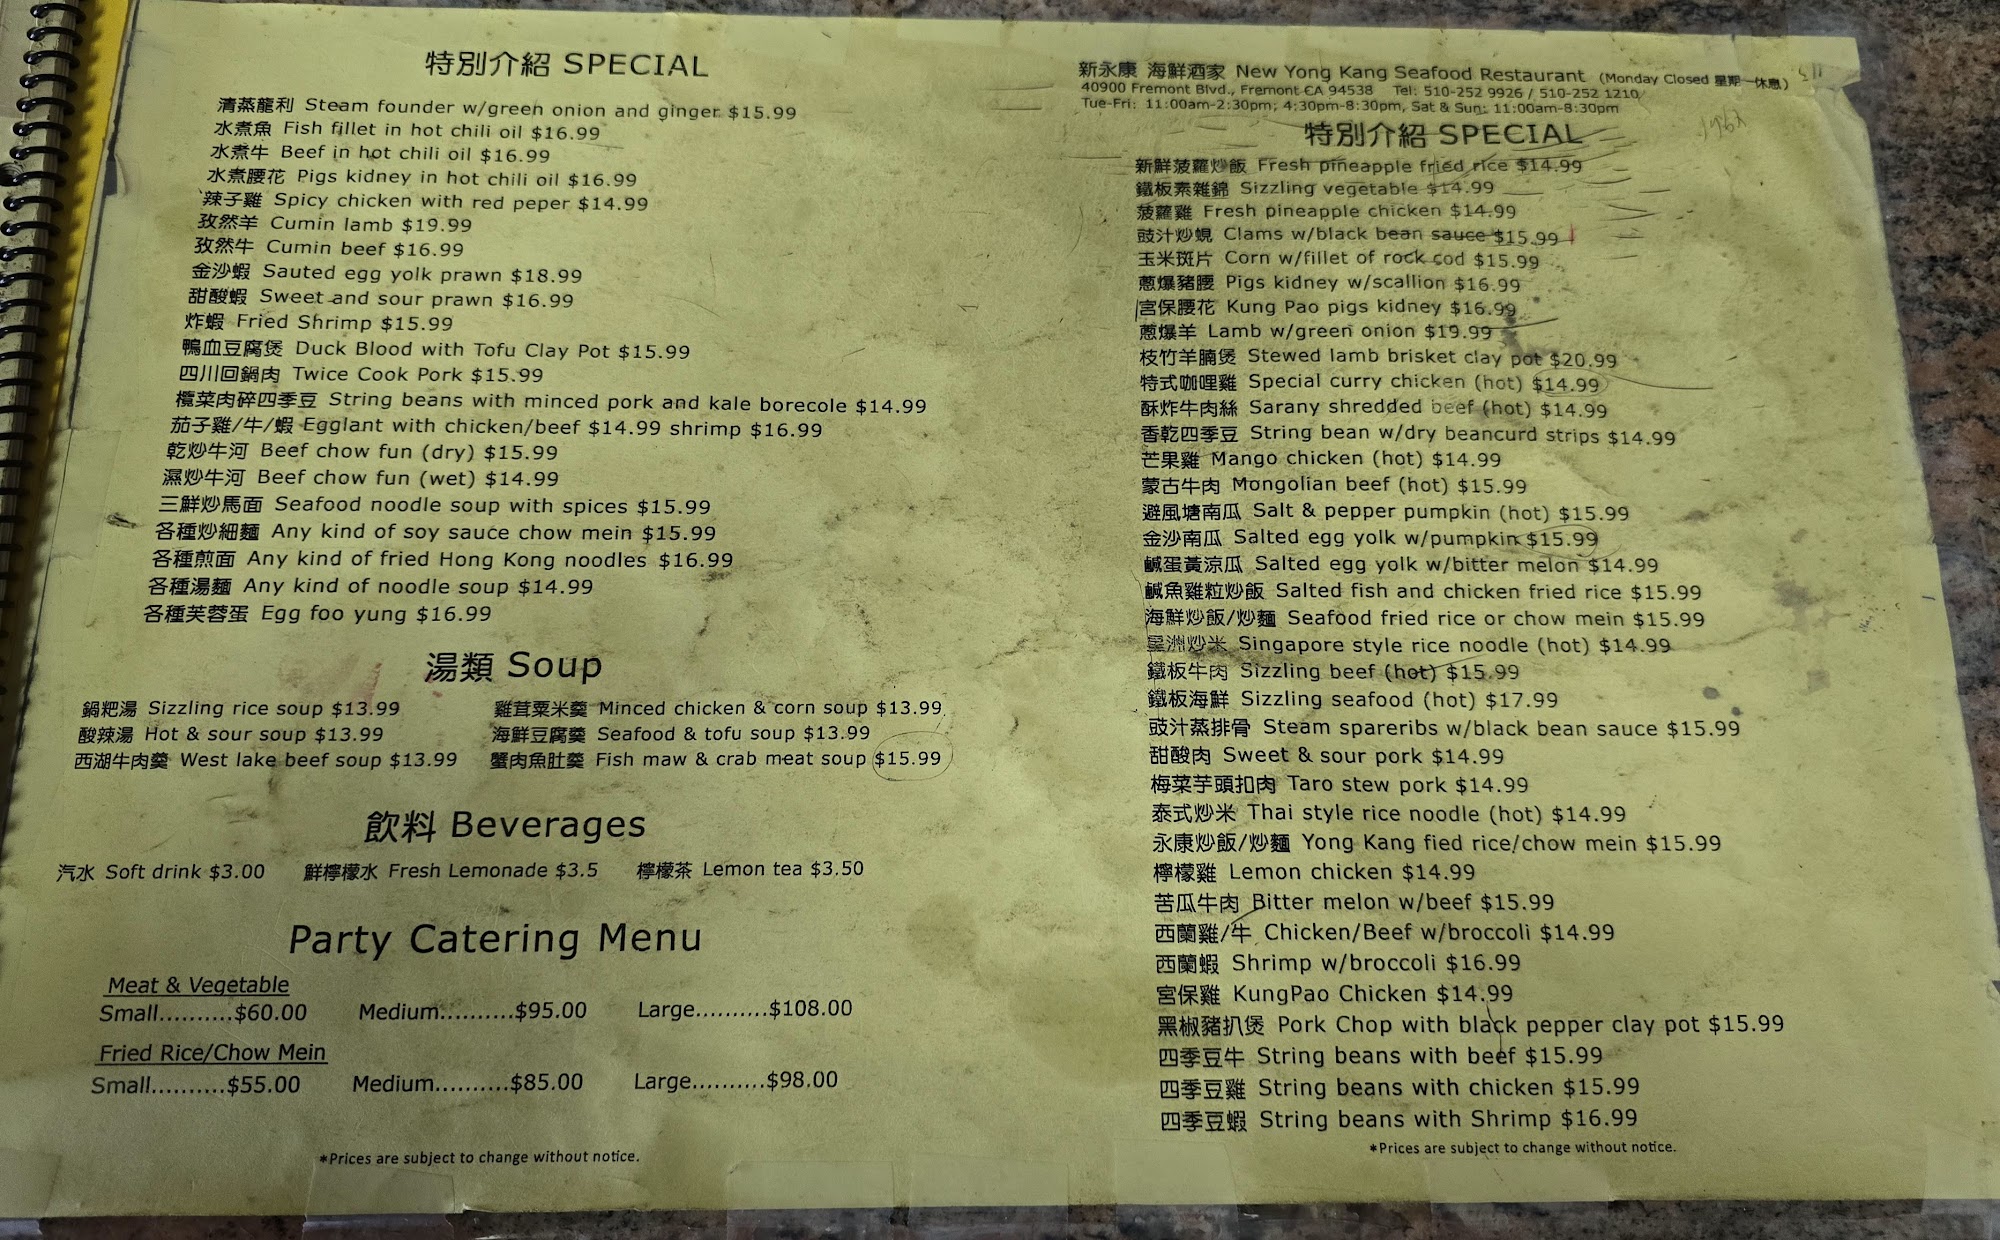 特別介紹 SPECIAL
清蒸龍利 Steam founder w/green onion and ginger $15.99
水煮魚 Fish fillet in hot chili oil $16.99
水煮牛 Beef in hot chili oil $16.99
水煮腰花 Pigs kidney in hot chili oil $16.99
辣子雞 Spicy chicken with red peper $14.99
孜然羊 Cumin lamb $19.99
孜然牛 Cumin beef $16.99
金沙蝦 Sauted egg yolk prawn $18.99
甜酸蝦 Sweet and sour prawn $16.99
炸蝦 Fried Shrimp $15.99
鴨血豆腐煲 Duck Blood with Tofu Clay Pot $15.99
四川回鍋肉 Twice Cook Pork $15.99
欖菜肉碎四季豆 String beans with minced pork and kale borecole $14.99
茄子雞/牛/蝦 Egglant with chicken/beef $14.99 shrimp $16.99
乾炒牛河 Beef chow fun (dry) $15.99
濕炒牛河 Beef chow fun (wet) $14.99
三鮮炒馬面 Seafood noodle soup with spices $15.99
各種炒細麵 Any kind of soy sauce chow mein $15.99
各種煎面 Any kind of fried Hong Kong noodles $16.99
各種湯麵 Any kind of noodle soup $14.99
各種芙蓉蛋 Egg foo yung $16.99
湯類 Soup
鍋粑湯 Sizzling rice soup $13.99 雞茸粟米羹 Minced chicken & corn soup $13.99
酸辣湯 Hot & sour soup $13.99 海鮮豆腐羹 Seafood & tofu soup $13.99
西湖牛肉羹 West lake beef soup $13.99 蟹肉魚肚羹 Fish maw & crab meat soup $15.99
飲料 Beverages
汽水 Soft drink $3.00 鮮檸檬水 Fresh Lemonade $3.5 檸檬茶 Lemon tea $3.50
Party Catering Menu
Meat & Vegetable
Small..........$60.00 Medium..........$95.00 Large..........$108.00
Fried Rice/Chow Mein
Small..........$55.00 Medium..........$85.00 Large..........$98.00
*Prices are subject to change without notice.
新永康 海鮮酒家 New Yong Kang Seafood Restaurant (Monday Closed 星期一休息)
40900 Fremont Blvd., Fremont CA 94538 Tel: 510-252 9926 / 510-252 1210
Tue-Fri: 11:00am-2:30pm; 4:30pm-8:30pm, Sat & Sun: 11:00am-8:30pm
特別介紹 SPECIAL
新鮮菠蘿炒飯 Fresh pineapple fried rice $14.99
鐵板素雜錦 Sizzling vegetable $14.99
菠蘿雞 Fresh pineapple chicken $14.99
豉汁炒蜆 Clams w/black bean sauce $15.99
玉米斑片 Corn w/fillet of rock cod $15.99
蔥爆豬腰 Pigs kidney w/scallion $16.99
宮保腰花 Kung Pao pigs kidney $16.99
蔥爆羊 Lamb w/green onion $19.99
枝竹羊腩煲 Stewed lamb brisket clay pot $20.99
特式咖哩雞 Special curry chicken (hot) $14.99
酥炸牛肉絲 Sarany shredded beef (hot) $14.99
香乾四季豆 String bean w/dry beancurd strips $14.99
芒果雞 Mango chicken (hot) $14.99
蒙古牛肉 Mongolian beef (hot) $15.99
避風塘南瓜 Salt & pepper pumpkin (hot) $15.99
金沙南瓜 Salted egg yolk w/pumpkin $15.99
鹹蛋黃涼瓜 Salted egg yolk w/bitter melon $14.99
鹹魚雞粒炒飯 Salted fish and chicken fried rice $15.99
海鮮炒飯/炒麵 Seafood fried rice or chow mein $15.99
星洲炒米 Singapore style rice noodle (hot) $14.99
鐵板牛肉 Sizzling beef (hot) $15.99
鐵板海鮮 Sizzling seafood (hot) $17.99
豉汁蒸排骨 Steam spareribs w/black bean sauce $15.99
甜酸肉 Sweet & sour pork $14.99
梅菜芋頭扣肉 Taro stew pork $14.99
泰式炒米 Thai style rice noodle (hot) $14.99
永康炒飯/炒麵 Yong Kang fied rice/chow mein $15.99
檸檬雞 Lemon chicken $14.99
苦瓜牛肉 Bitter melon w/beef $15.99
西蘭雞/牛 Chicken/Beef w/broccoli $14.99
西蘭蝦 Shrimp w/broccoli $16.99
宮保雞 KungPao Chicken $14.99
黑椒豬扒煲 Pork Chop with black pepper clay pot $15.99
四季豆牛 String beans with beef $15.99
四季豆雞 String beans with chicken $15.99
四季豆蝦 String beans with Shrimp $16.99
*Prices are subject to change without notice.